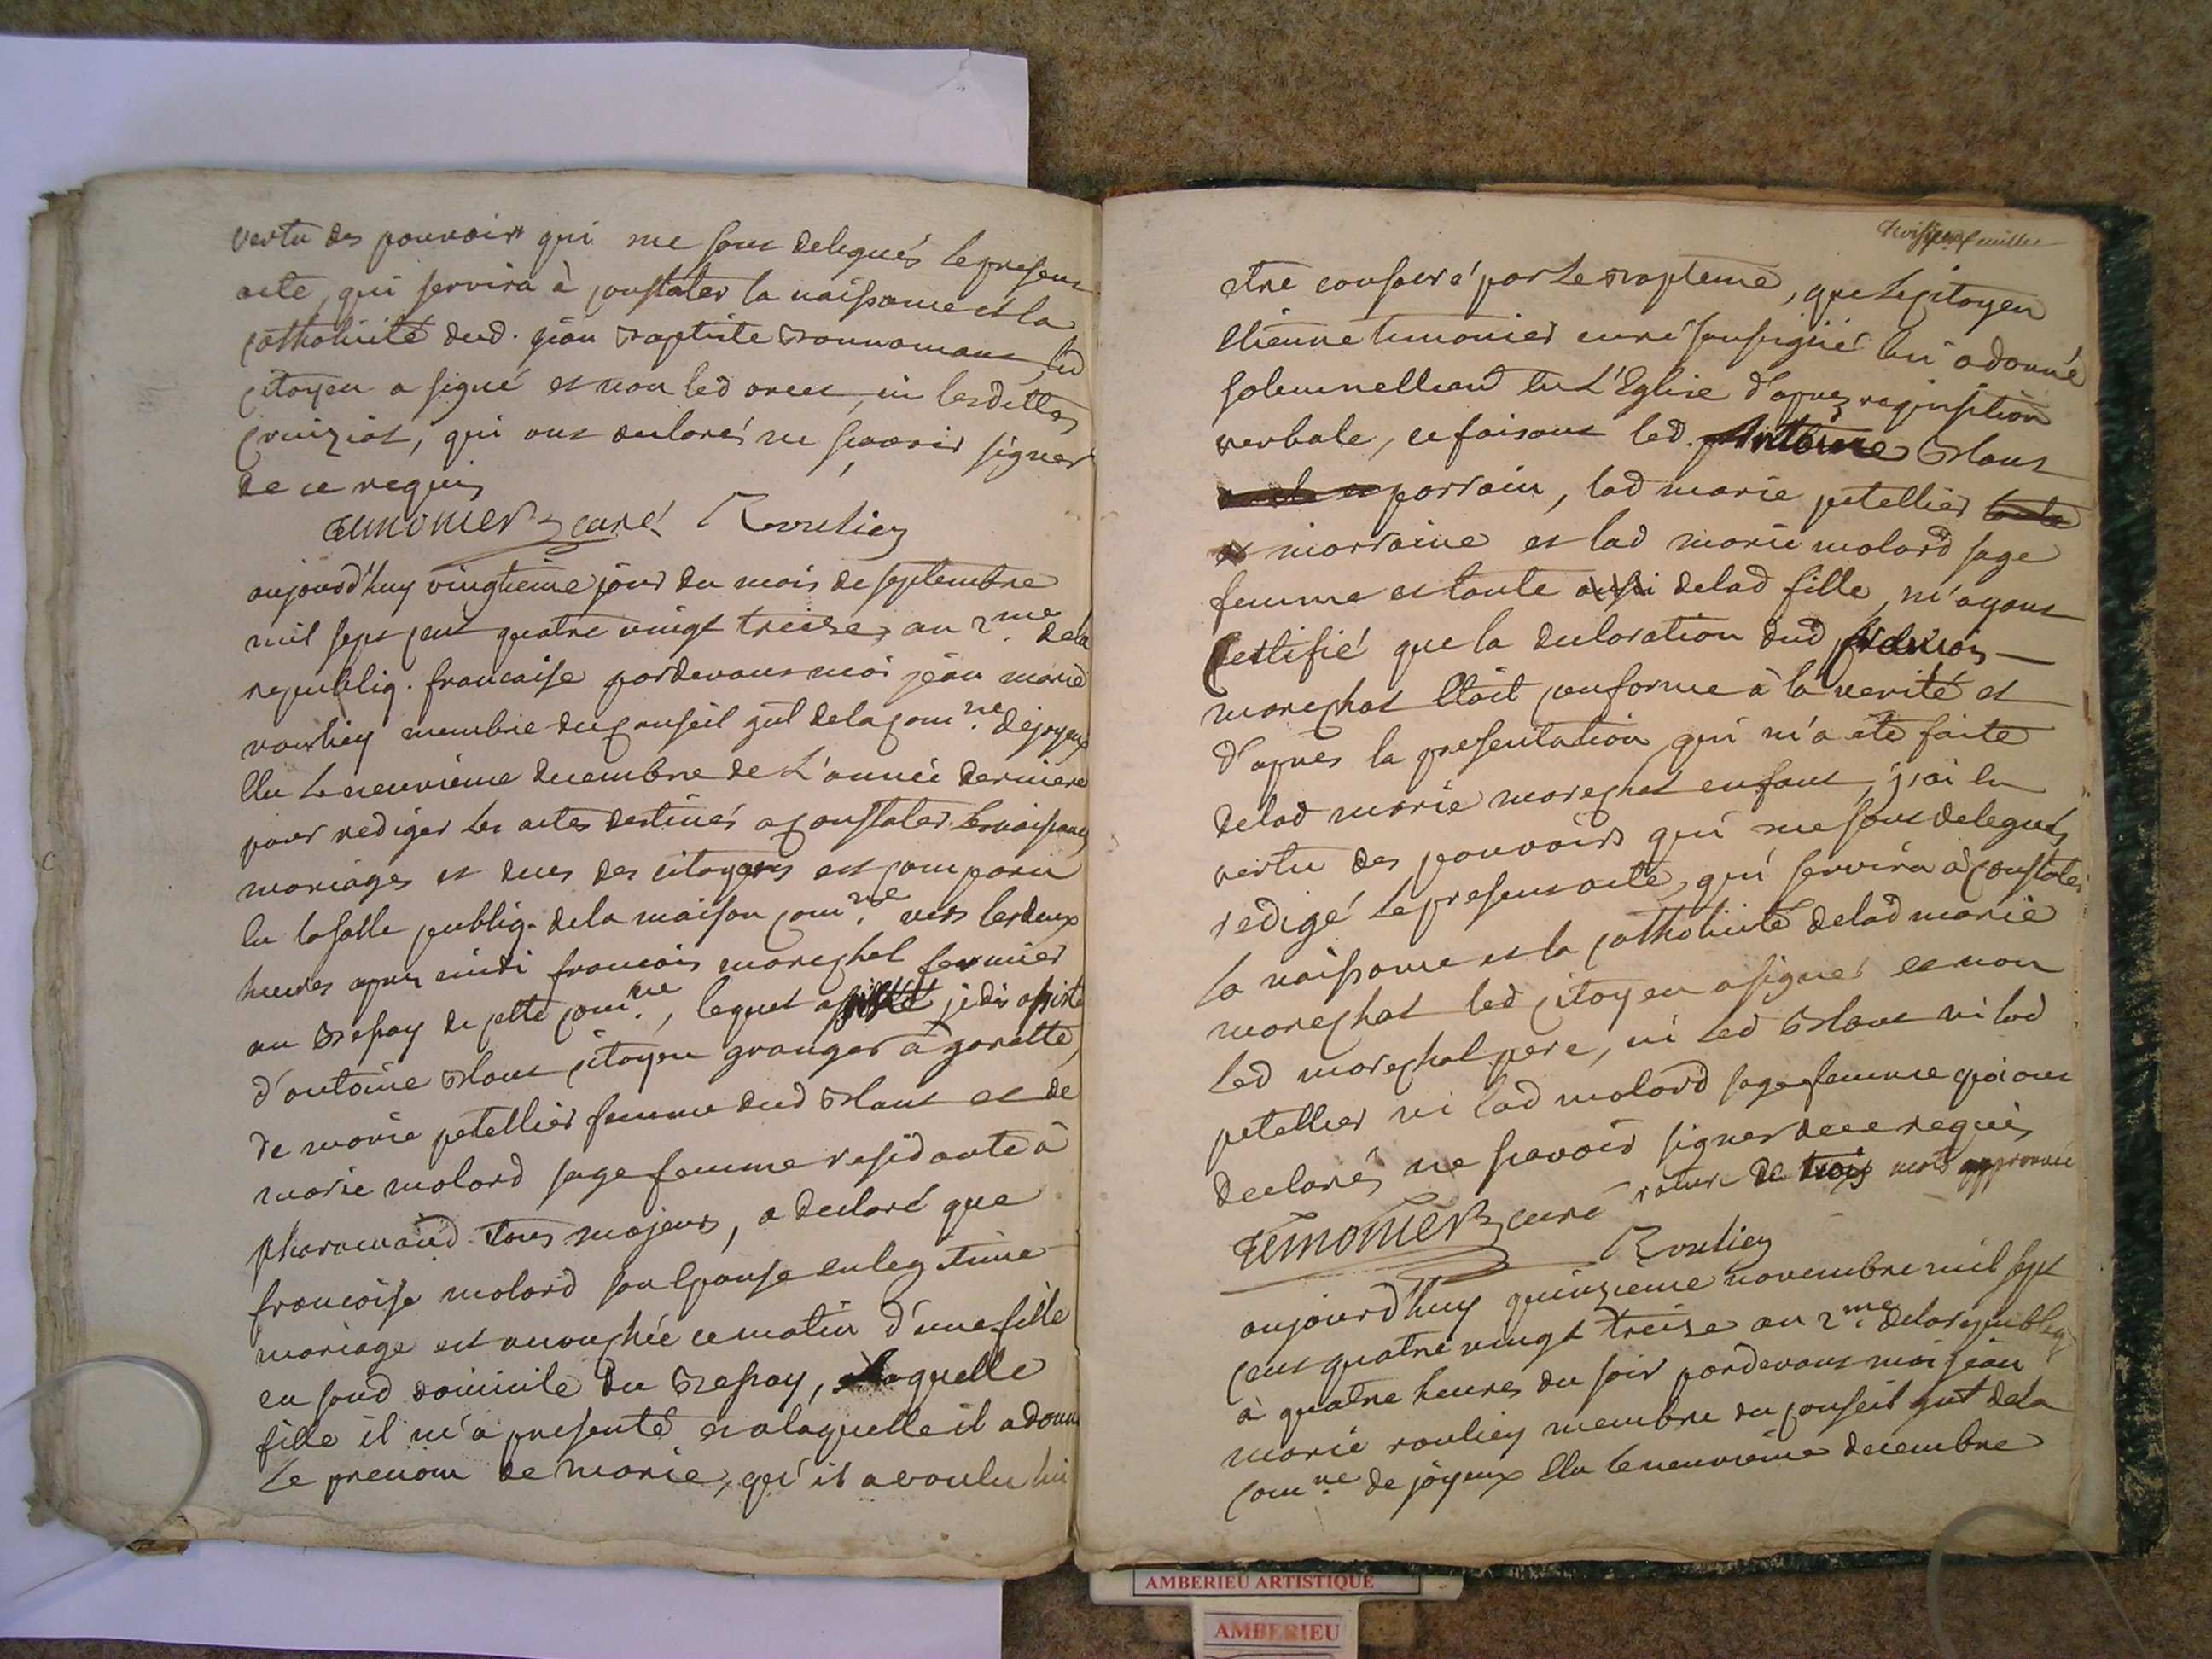 vertu des pouvoirs qui me sont delegués le present
acte, qui servira à constater la naissance et la
catholicité dud. jean baptiste bonnamant, led
citoyen a signé et non led oncet, ni lesdittes
cruiziat, qui ont declarés ne scavoir signer
de ce requis
curé Roulier
aujourd'huy vingtieme jour du mois de septembre
mil sept cent quatre vingt treise, an 2me. dela
republiq. francaise pardevant moi jean marie
roulier membre du conseil gnl delacomne. dejoyeux
Elu le neuvieme decembre de L'année derniere
pour rediger les actes destinés a constater les naissances
mariages et deces des citoyens est comparu
En lasalle publiq. dela maison comne. vers lesdeux
heures apres midi francois marechal fermier
au bessay de cette comne., lequel assisté jedis assisté
d'antoine blanc citoyen granger à garette,
de marie petellier femme dud blanc et de
marie molard sage femme residante à
pharamand tous majeurs, a declaré que
francoise molard son Epouse en legitime
mariage est accouchée ce matin d'une fille
en soud domicile du bessay, laquelle
fille il m'a presenté et alaquelle il a donné
le prenom de marie, qu'il a voulu lui
troisieme feuillet
etre consacré par le bapteme, que lecitoyen
Etienne curé soussigné lui a donné
solemnellemt en L'Eglise d'apres requisition
verbale, ce faisant led. Antoine blanc
parrain, lad marie petellier
marraine et lad marie molard sage
femme et tante aussi delad fille, m'ayant
Certifié que la declaration dud francois
marechal Etoit conforme à la verité et
d'apres la presentation qui m'a été faite
delad marie marechal enfant, j'ai en
vertu des pouvoirs qui me sont delegués
redigé le present acte, qui servira à constater
la naissance et la catholicité delad marie
marechal led citoyen a signé et non
led marechal pere, ni led blanc ni lad
petellier ni lad molard sage femme qui ont
declarés ne savoir signer de ce requis
rature de trois mots approuvée
curé
Roulier
aujourd'huy quinzieme novembre mil sept
cent quatre vingt treize an 2me. delarepubliq
à quatre heures du soir pardevant moi jean
marie roulier membre du conseil gnl dela
comne. de joyeux Elu le neuvieme decembre
AMBERIEU ARTISTIQUE
AMBERIEU